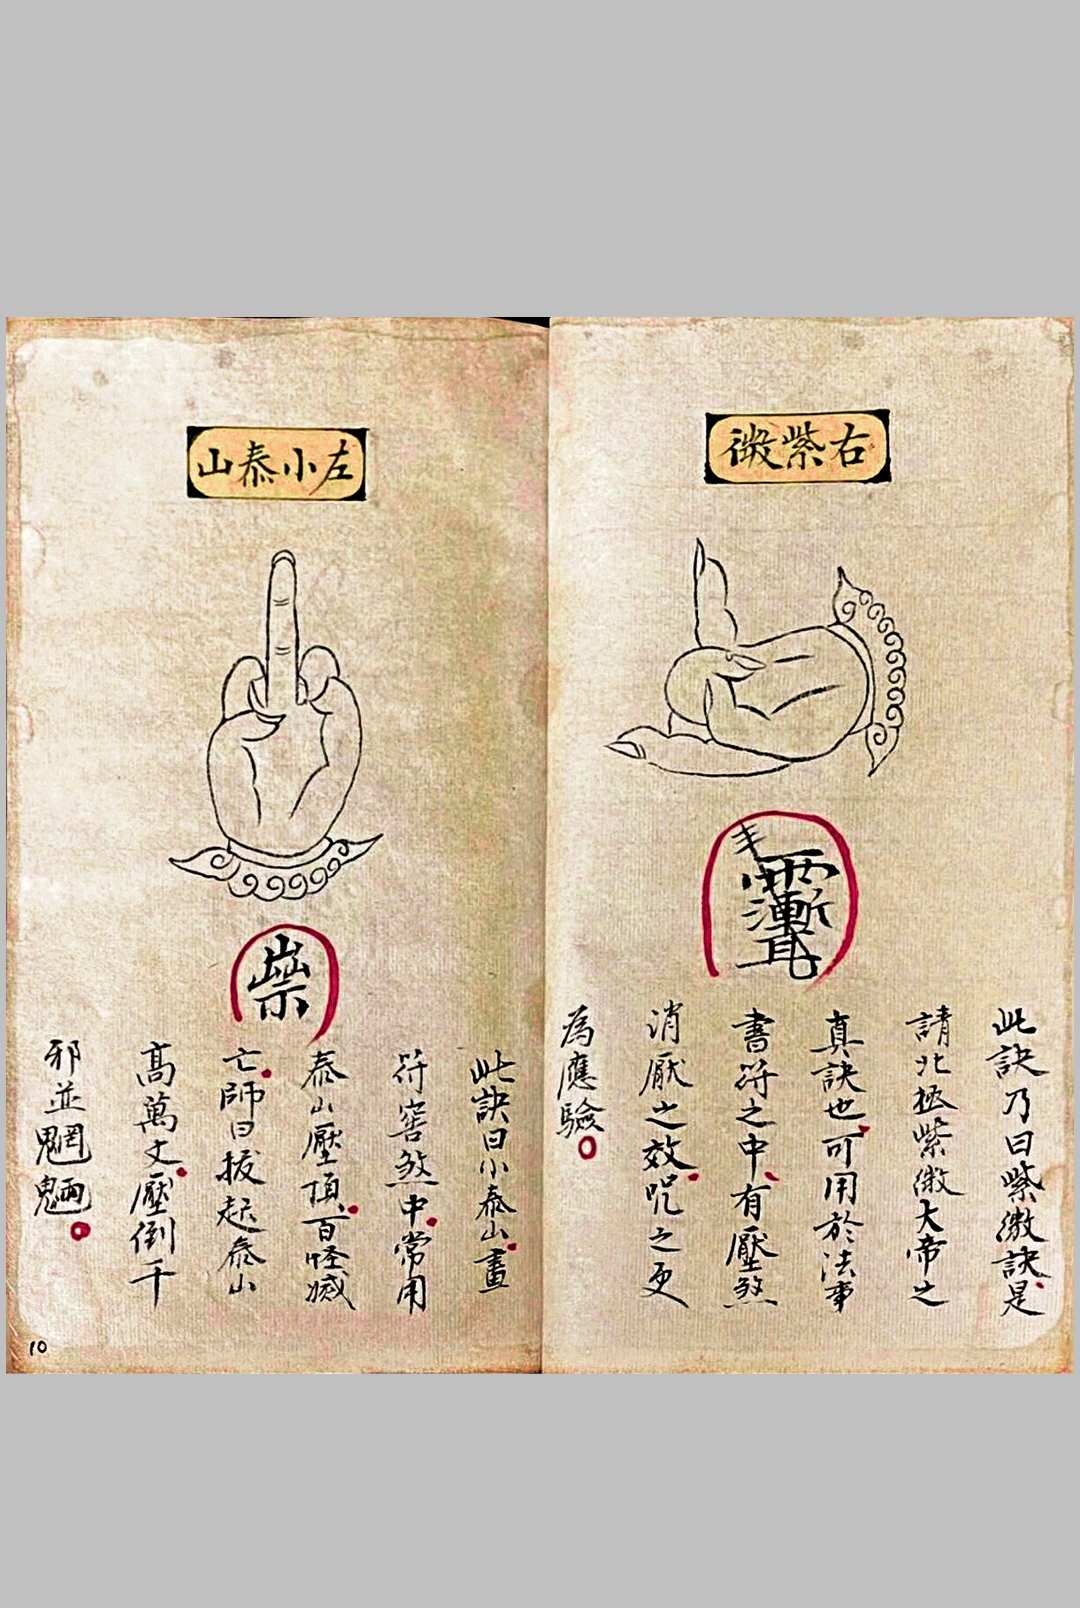 右紫微
此訣乃曰紫微訣是
請北極紫微大帝之
真訣也可用於法事
書符之中有壓煞
消厭之效咒之更
為應驗
左小泰山
此訣曰小泰山畫
符窖煞中常用
泰山壓頂百怪滅
亡師曰拔起泰山
高萬丈壓倒千
邪並魍魎
10